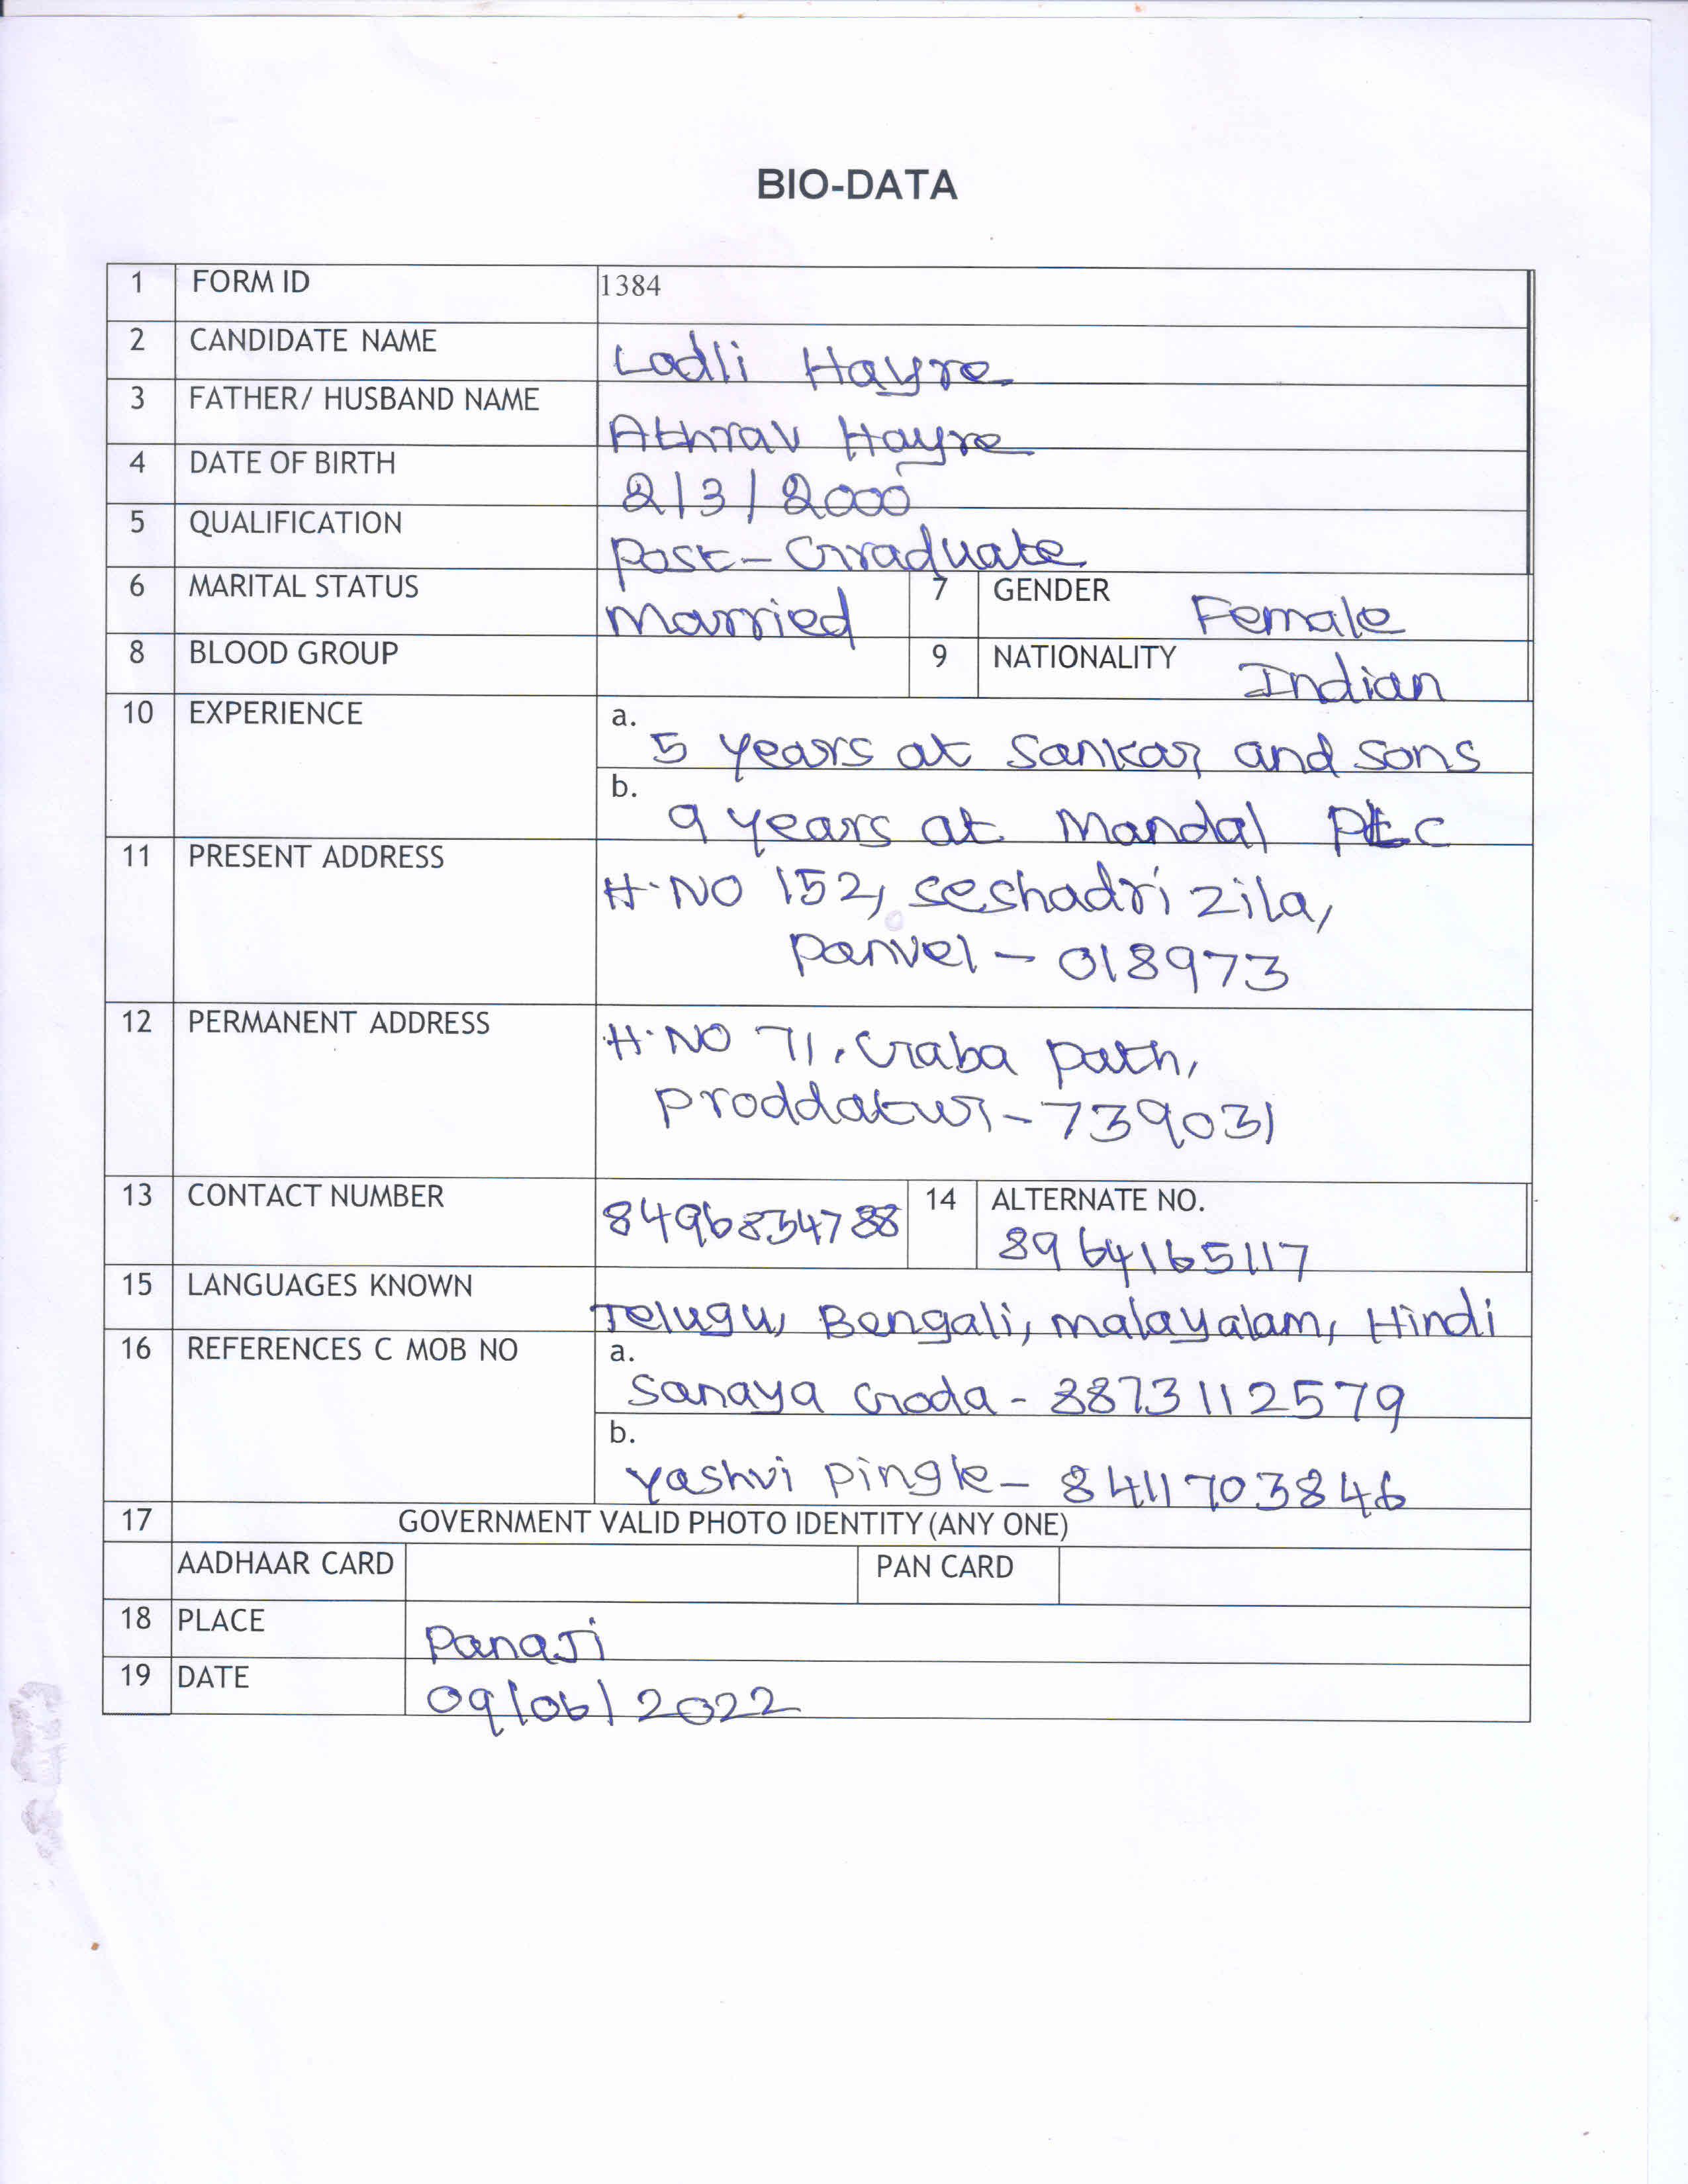 BIO-DATA
1 FORM ID 1384
2 CANDIDATE NAME Ladli Hayre
3 FATHER/ HUSBAND NAME Athrav Hayre
4 DATE OF BIRTH 2/3/2000
5 QUALIFICATION Post-Graduate
6 MARITAL STATUS Married 7 GENDER Female
8 BLOOD GROUP 9 NATIONALITY Indian
10 EXPERIENCE a. 5 years at Sankar and sons
b. 9 years at Mandal PLC
11 PRESENT ADDRESS H.NO 152, seshadri zila,
Panvel - 018973
12 PERMANENT ADDRESS H.NO 71, Graba path,
Proddatur - 739031
13 CONTACT NUMBER 8496834788 14 ALTERNATE NO.
8964165117
15 LANGUAGES KNOWN Telugu, Bengali, malayalam, Hindi
16 REFERENCES C MOB NO a.
Sanaya Goda - 8873112579
b.
Yashvi Pingle - 8411703846
17 GOVERNMENT VALID PHOTO IDENTITY (ANY ONE)
AADHAAR CARD PAN CARD
18 PLACE Panaji
19 DATE 09/06/2022